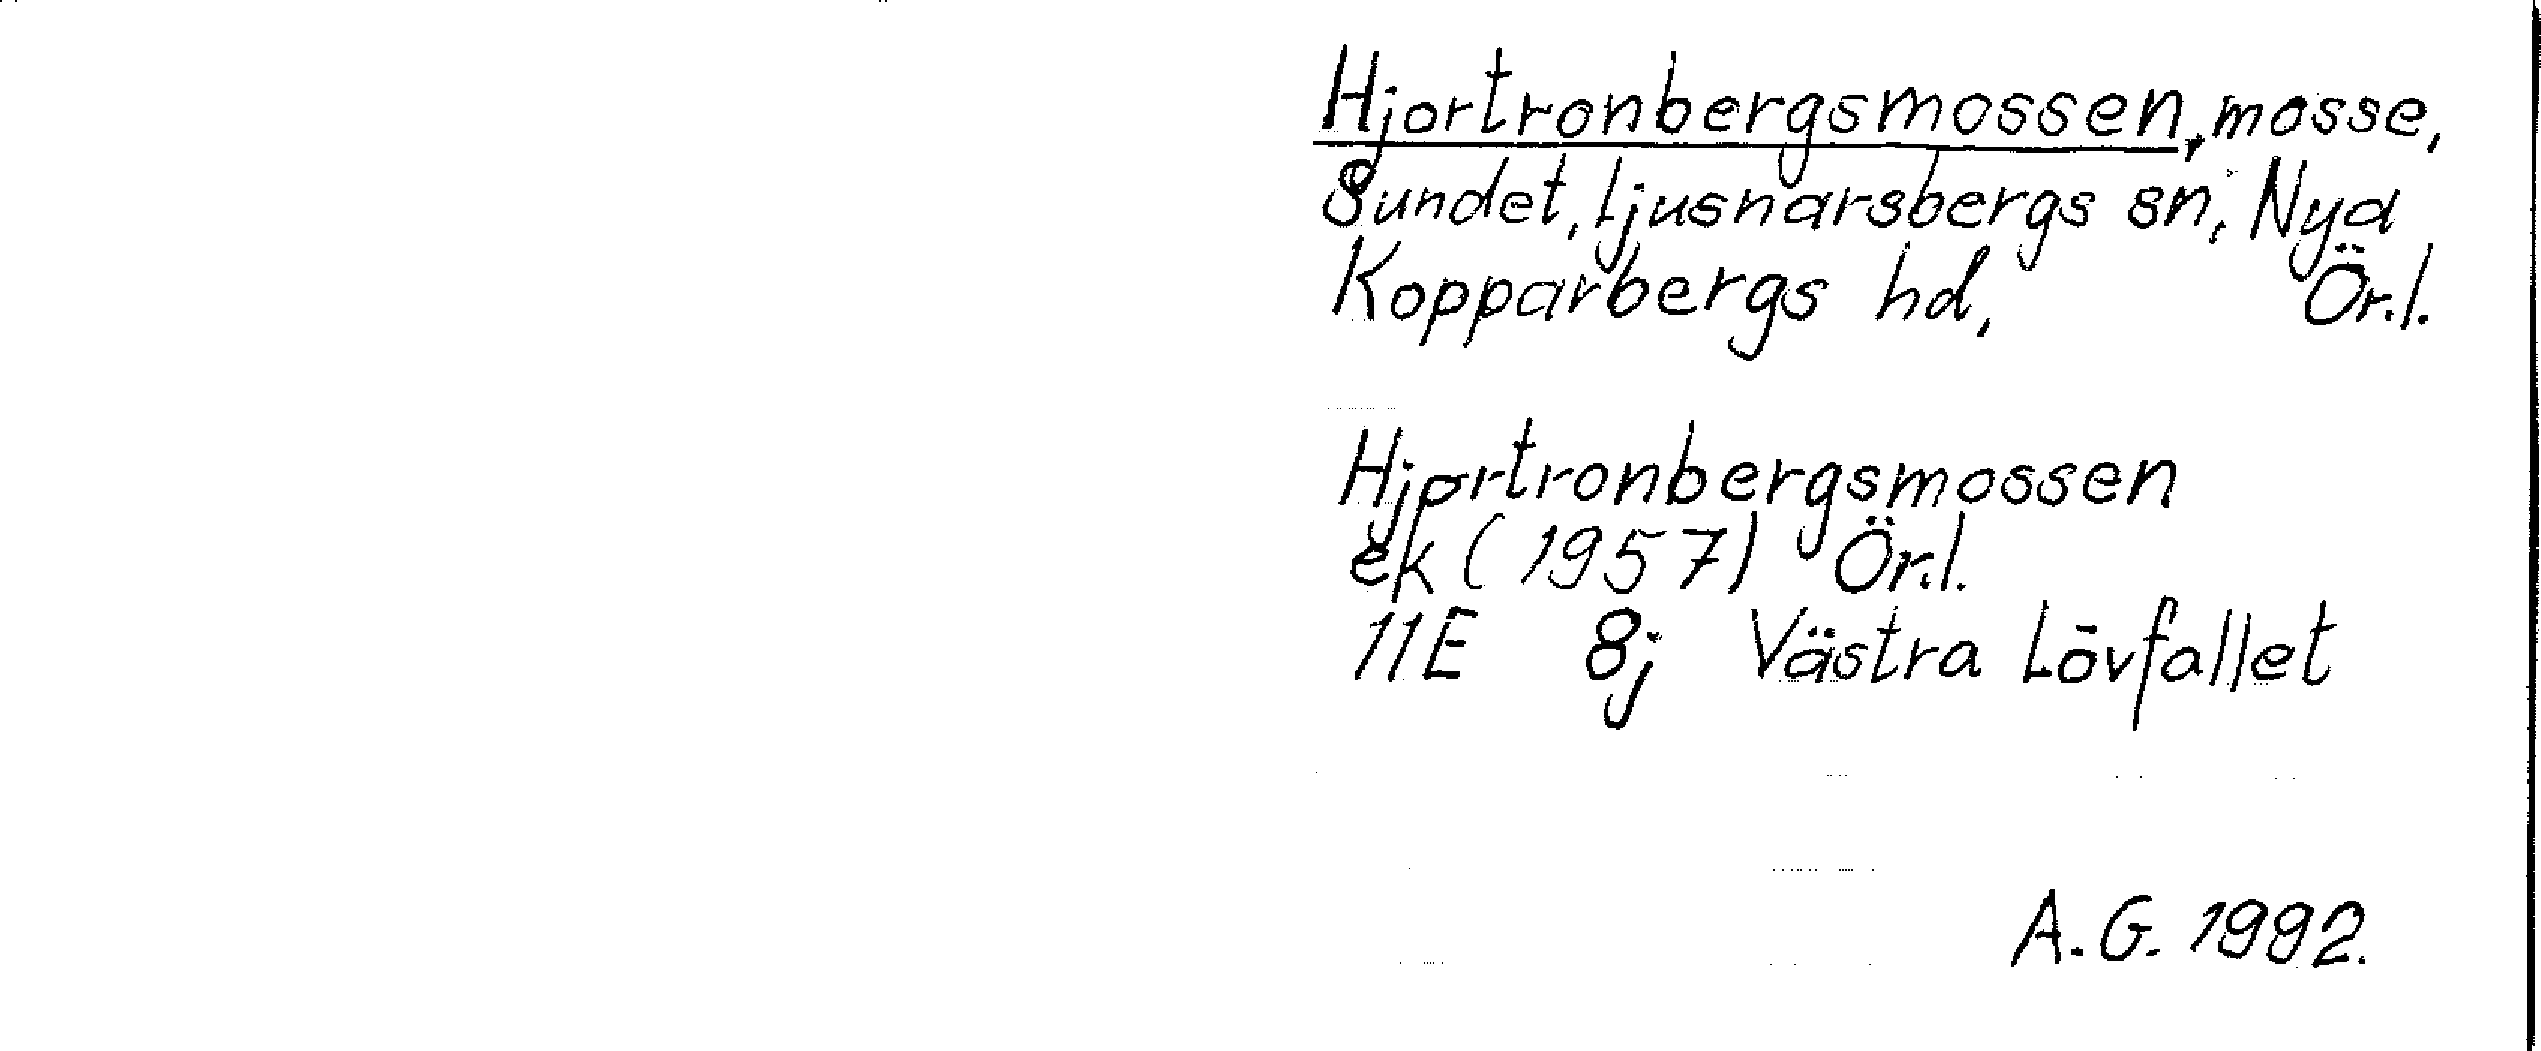 Hjortronbergsmossen, mosse,
Sundet, Ljusnarsbergs sn, Nya
Kopparbergs hd, Ör.l.
Hjortronbergsmossen
ek (1957) Ör.l.
11E 8j Västra Lövfallet
A.G. 1992.